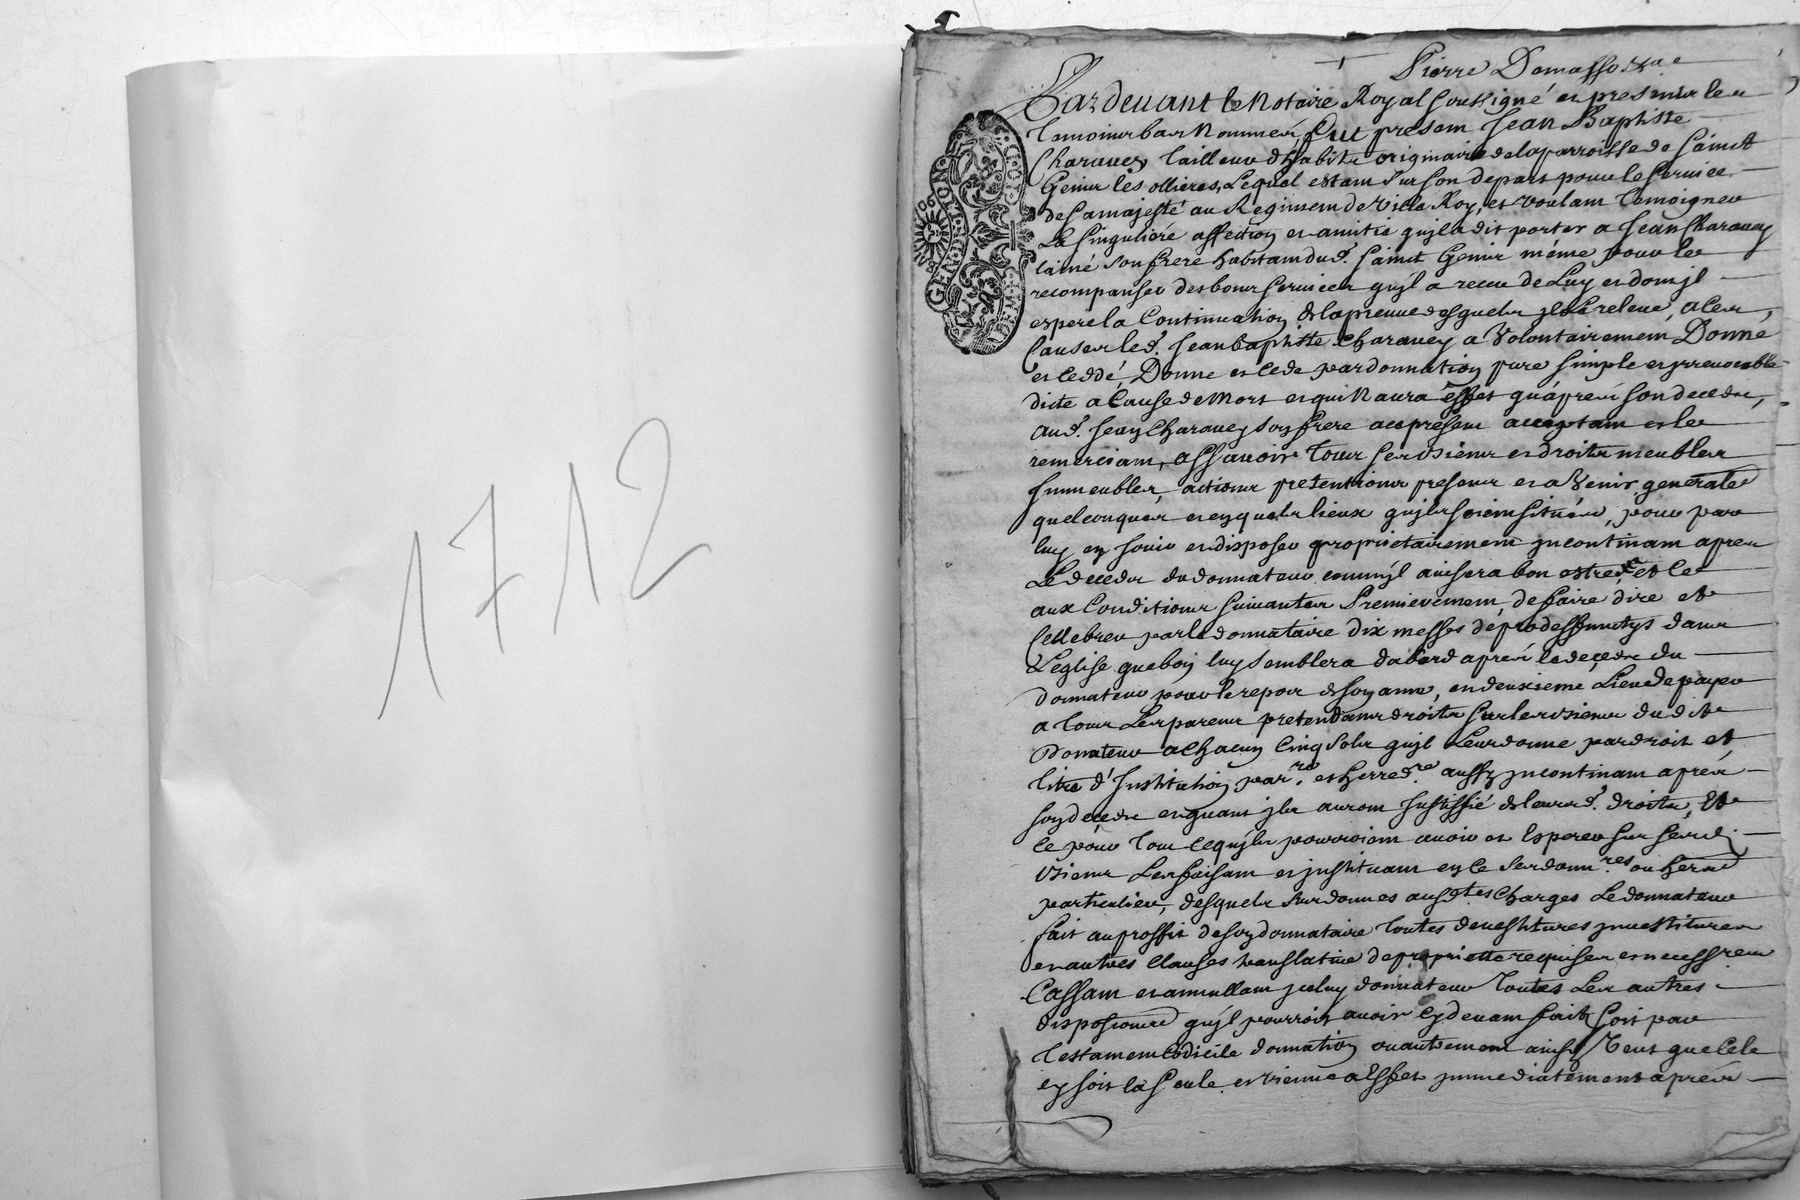 1712
Pierre Damasso
Pardevant le Notaire Royal soussigné et presents les
temoins bas Nommés fut present Jean Baptiste
Charavey tailleur d'habits originaire de la parroisse de Sainct
Genis les ollieres, Lequel estant sur son depart pour le service
de sa majesté au Regiment de Ville Roy, et voulant temoigner
La singuliere affection et amitié qu'il a dit porter a Jean Charavey
lainé son frere habitant dud. Sainct Genis même pour le
recompenser des bons services qu'il a receu de Luy et dont jl
espere la Continuation de la preuve desquels jl le releve, a ces
Causes led. Jean baptiste Charavey a Volontairement Donné
et Ceddé, Donne et Cede par donnation pure simple et jrrevocable
dicte a Cause de Mort et qui N'aura effet qu'aprés son deceds,
aud. Jean Charavey son frere acepresent acceptant et le
remerciant, assavoir tous ses biens et droits meubles
Immeubles, actions pretentions presents et a Venir generales
quelconques et en quels lieux qu'ils soient situés, pour par
luy en jouir et disposer proprietairement jncontinant apres
Le deceds du donnateur comm'jl avisera bon estre et ce
aux Conditions suivantes Premierement, de faire dire et
Cellebrer par le donnataire dix messes de pro deffunctys dans
L'eglise que bon luy semblera dabord aprés le deceds du
donnateur pour le repos de son ame, en deuxieme Lieu de payer
a tous Les parens pretendans droits sur les biens du dit
Donnateur a chacun Cinq sols qu'il Leur donne par droit et
titre d'Institution par.re et herred.re aussy jncontinant aprés
son deceds et quant jls auront Justiffié de leursd. droits, Et
ce pour tout ce qu'jls pourroient avoir et Esperer sur sesd.
biens Les faisant et jnstituant en ce ses donn.res ou hers
particuliers, desquels susdonnes ausd.tes Charges Le donnateur
fait au proffit de son donnataire toutes devestitures jnvestitures
et autres Clauses translative de proprietté requises et necessres
Cassant et annullant jceluy donnateur toutes Les autres
dispositions qu'jl pourroit avoir Cy devant fait soit par
testament Codicile donnation ou autrement ainsy Veut que Cele
cy soit la seule et tienne a Effet jmmediatement aprés